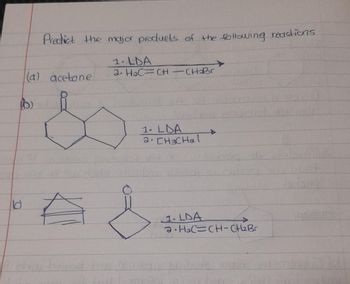 Predict the major products of the following reactions
1. LDA
(a) acetone 2. H₂C=CH-CH₂Br
(b)
O
1. LDA
2. CH₃CH₂I
O
1. LDA
2. H₂C=CH-CH₂Br